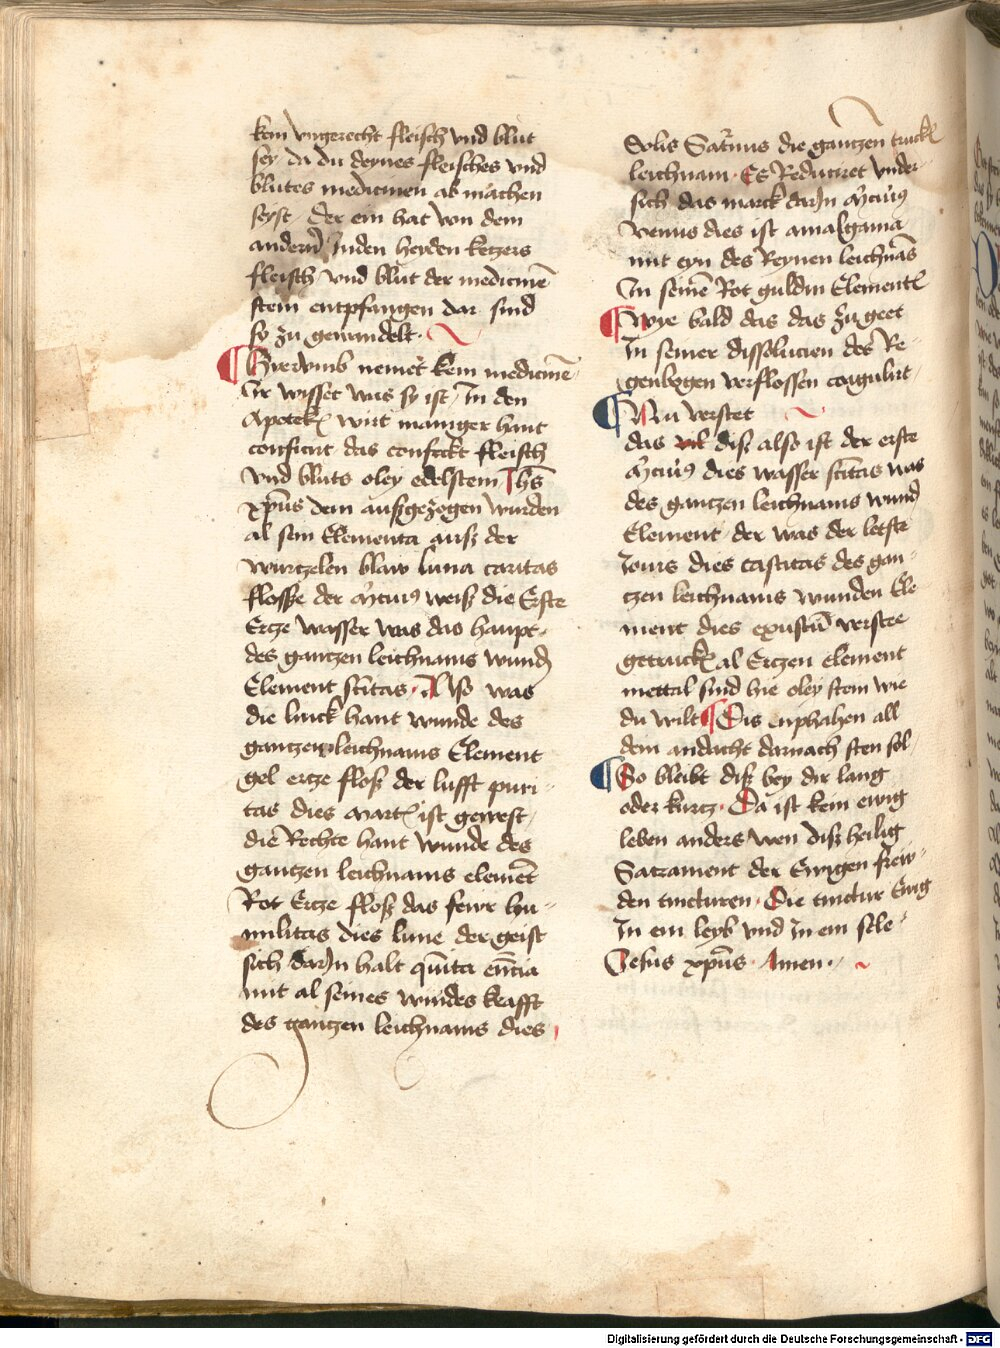 kein vngerecht fleisch vnd blut
sey da du deynes fleisches vnd
blutes medicinen ab machen
seyst der ein hat von dem
andern Inden heyden ketzers
fleisch vnd blut der medicinē
stein entpfangen dar sind
so zu gewandelt
Hiervmb nemēt kein medicinē
Ir wisset was sy ist In den
Apotek wirt maniger hant
conficirt das confeckt fleisch
vnd bluts oley edelstein Ihs
xpus dem außgezogen wurden
al sein Elementa auß der
wurtzelen blaw luna caritas
flosße der mrcuius weiß die Erste
Ertze wasser was das haupt
des gantzen leichnams wund
Element scitas Also was
die linck hant wunde des
gantzen leichnams Element
gel ertze floß der lufft puri-
tas dies Mart ist gewest
die Rechte hant wunde des
gantzen leichnams elemēt
Rot Ertze floß das fewr hu-
militas dies lune der geist
sich darJn halt quīta encia
mit al seines windes krafft
des gantzen leichnams dies
Solis Satnus die gantzen truck
leichnam Es Reduciret vnder
sich das marck darJn mrcuius
venus dies ist amalgama
mit eyn des Reynen leichnās
In seinē Rot guldin Element
Wye bald das das zu geet
In seiner dissolucien des Re-
genbogen verflossen coagulirt
Nu verstet
das vil diß also ist der erste
mrcuius dies wasser scitas was
des gantzen leichnams wund
Element der was der letste
Iouis dies castitas des gan-
tzen leichnams wunden Ele
ment dies verstee
getruck al Ertzen element
mettal sind hie oley stein wie
du wilt Dis enphahen all
dem andacht darnach sten sol
So bleibt diß bey dir lang
oder kurtz Da ist kein ewig
leben anders wen diß heilig
Sacrament der Ewigen frew-
den tincturen Die tinctur Ewig
In ein leyb vnd in ein sele
Jesus xpus Amen
Digitalisierung gefördert durch die Deutsche Forschungsgemeinschaft - DFG